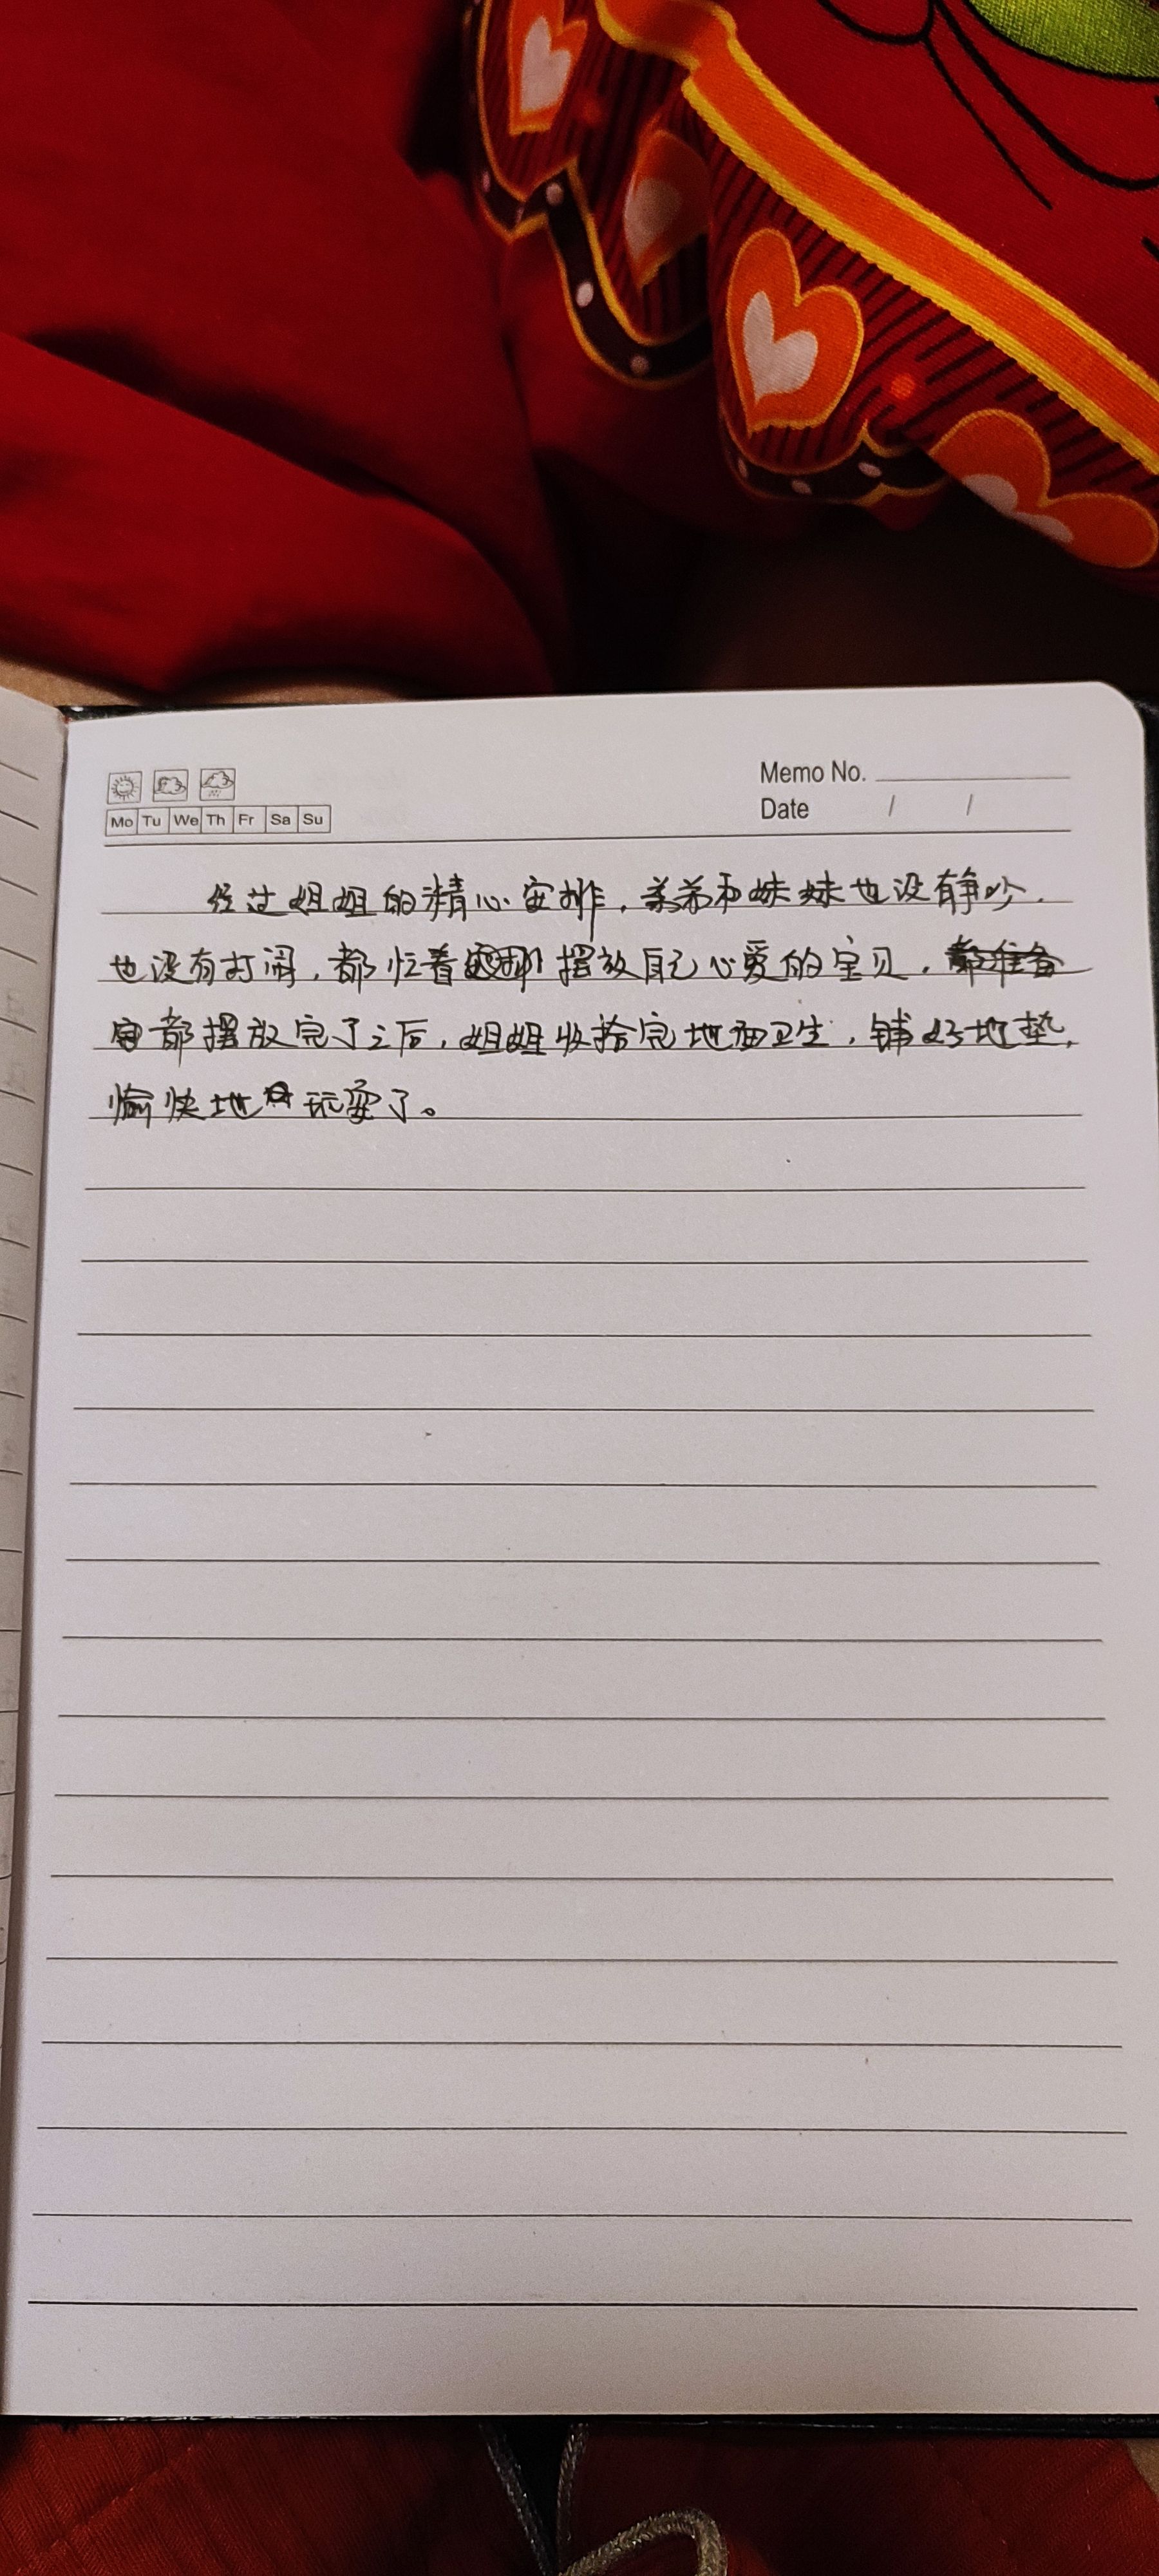 Memo No.
Mo Tu We Th Fr Sa Su
Date / /
经过姐姐的精心安排，弟弟和妹妹也没有静吵，
也没有打闹，都忙着摆放自己心爱的宝贝，
都摆放完了之后，姐姐收拾完地面卫生，铺好地垫，
愉快地玩耍了。